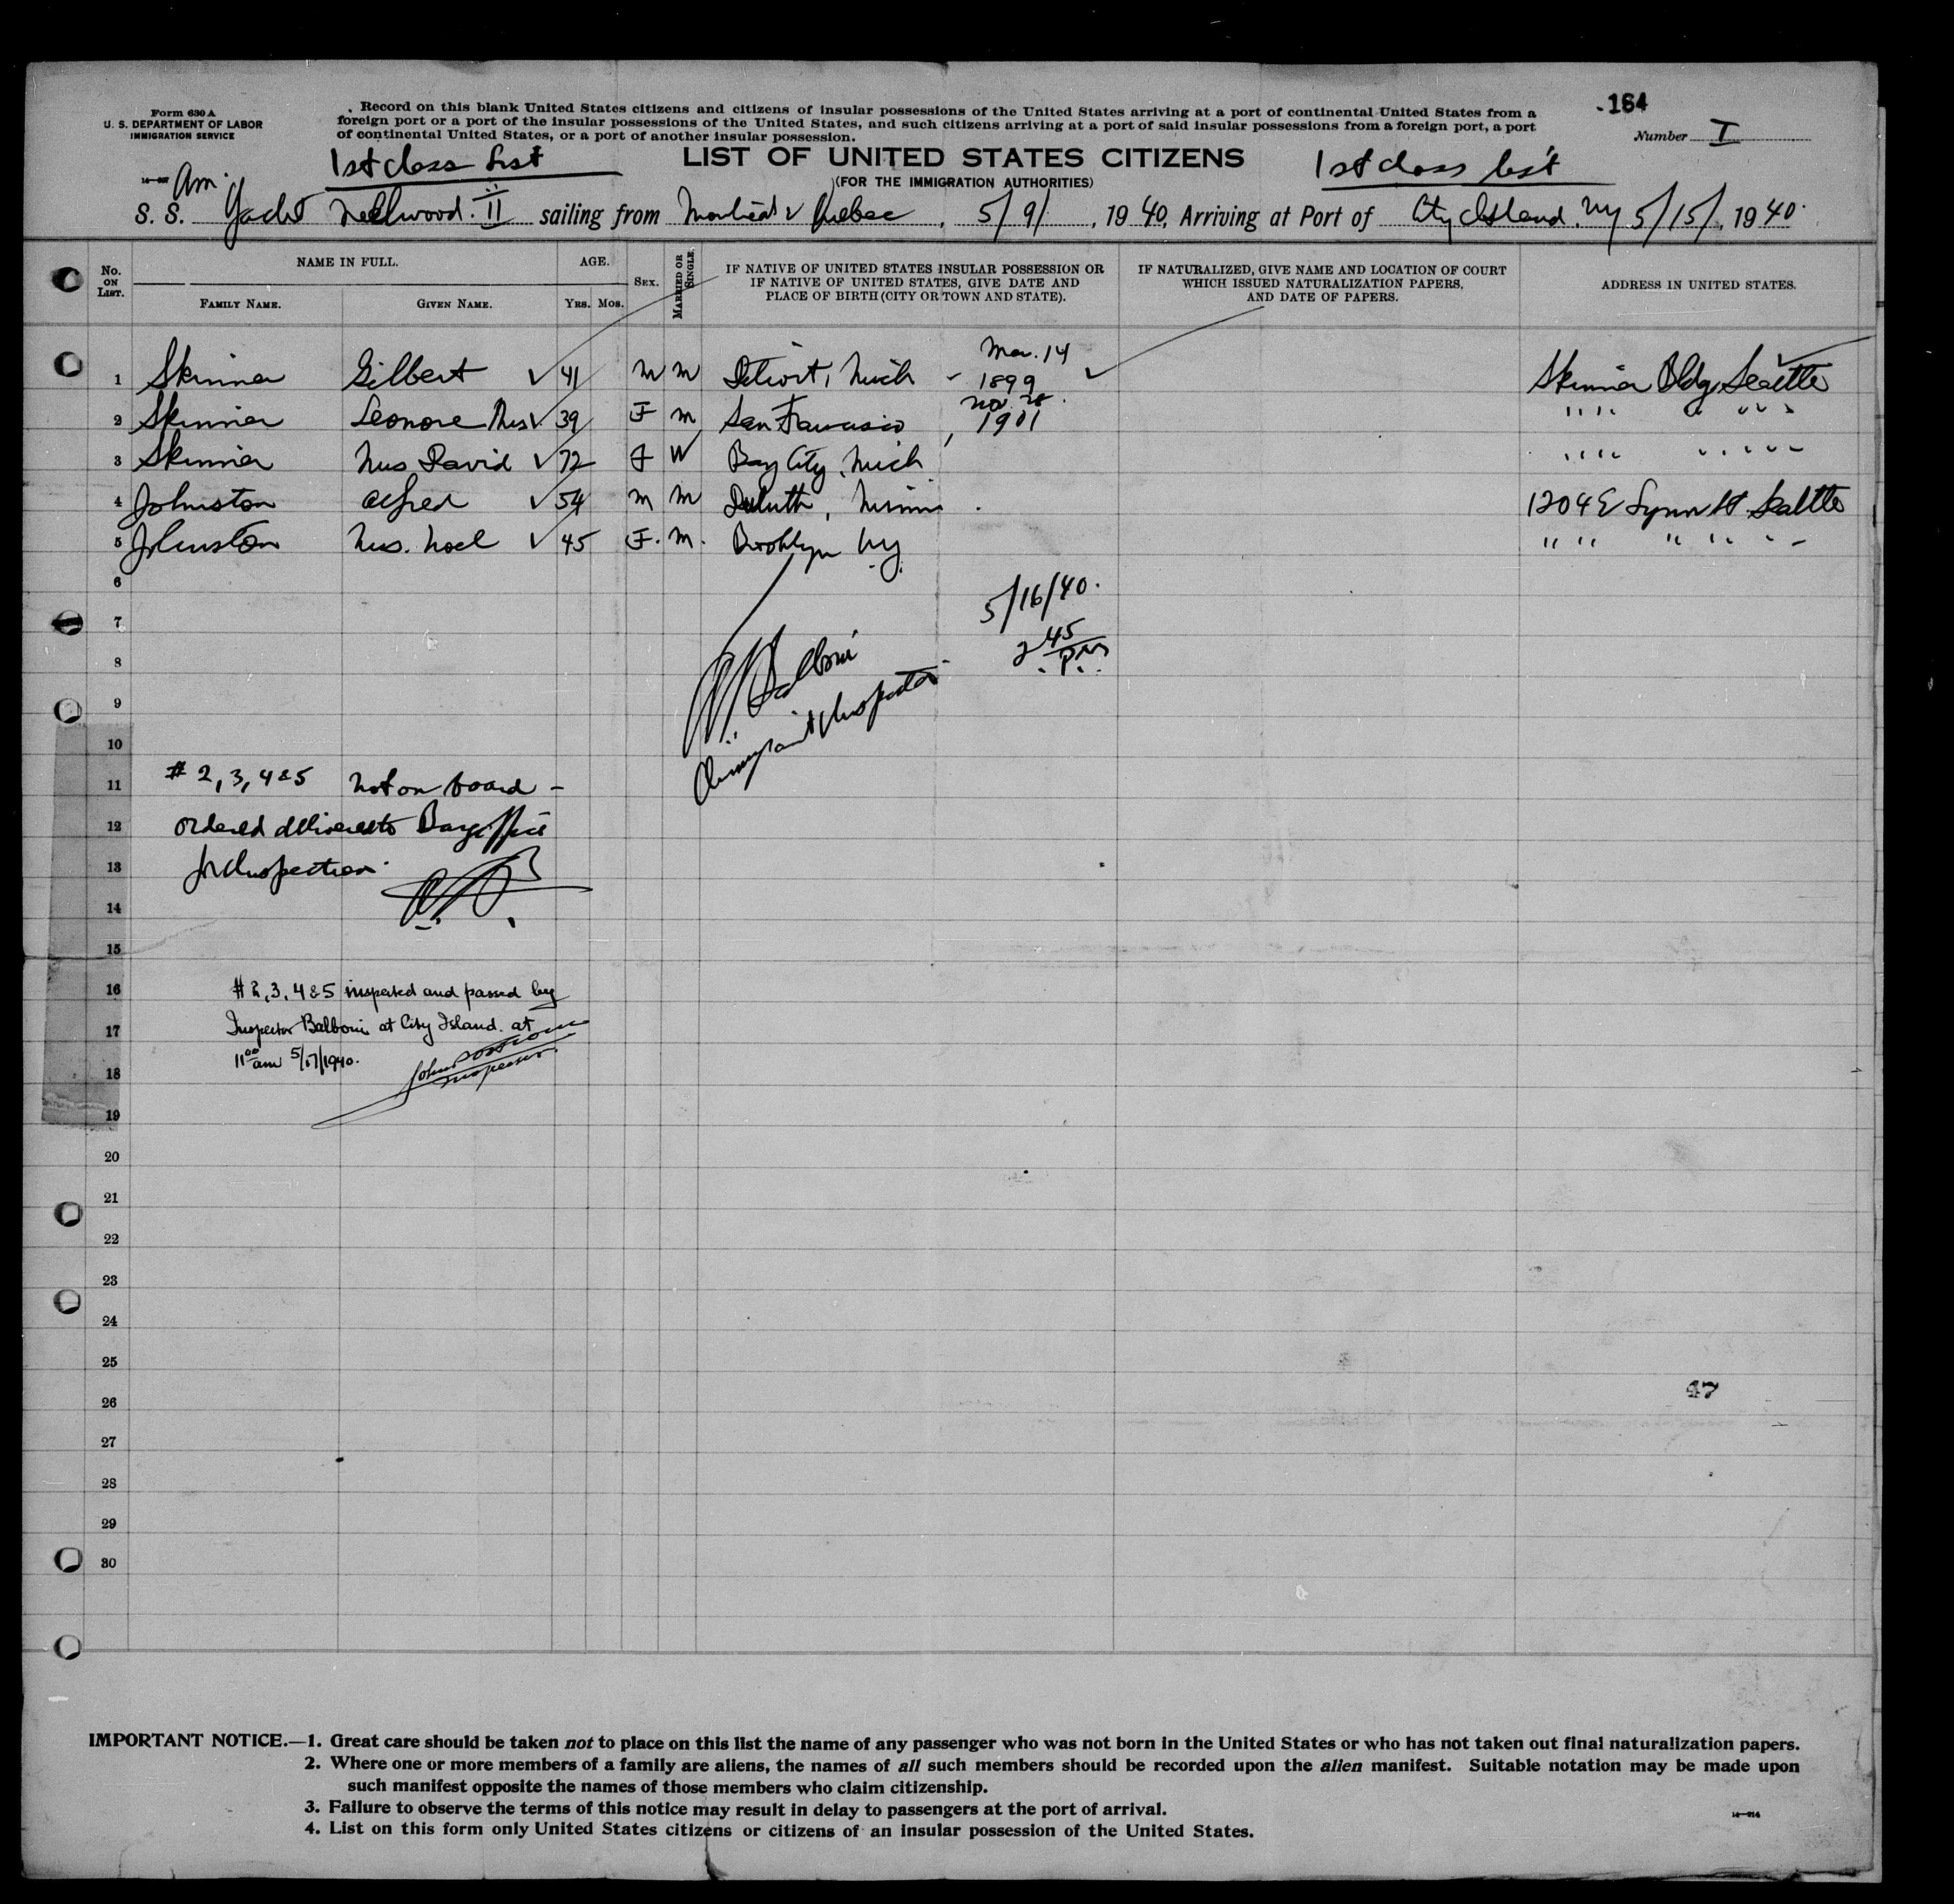 Form 630 A
U. S. DEPARTMENT OF LABOR
IMMIGRATION SERVICE
Record on this blank United States citizens and citizens of insular possessions of the United States arriving at a port of continental United States from a
foreign port or a port of the insular possessions of the United States, and such citizens arriving at a port of said insular possessions from a foreign port, a port
of continental United States, or a port of another insular possession.
164
Number I
1st class List
LIST OF UNITED STATES CITIZENS
1st class list
(FOR THE IMMIGRATION AUTHORITIES)
Am.
S. S. Yacht II sailing from Montreal Quebec, 5/9/, 1940, Arriving at Port of City Island. NY 5/15/, 1940.
No. ON LIST.
NAME IN FULL.
FAMILY NAME.
GIVEN NAME.
AGE.
YRS. MOS.
SEX.
MARRIED OR SINGLE.
IF NATIVE OF UNITED STATES INSULAR POSSESSION OR
IF NATIVE OF UNITED STATES, GIVE DATE AND
PLACE OF BIRTH (CITY OR TOWN AND STATE).
IF NATURALIZED, GIVE NAME AND LOCATION OF COURT
WHICH ISSUED NATURALIZATION PAPERS,
AND DATE OF PAPERS.
ADDRESS IN UNITED STATES.
1 Skinner Gilbert 41 M M Detroit, Mich - Mar. 14 1899 Skinner Bldg Seattle
2 Skinner Leonore Mrs 39 F M San Francisco, Nov. 28. 1901 " " " "
3 Skinner Mrs David 72 F W Bay City, Mich " " " "
4 Johnston Alfred 54 M M Duluth, Minn. 1204 E Lynn St Seattle
5 Johnston Mrs. Noel 45 F. M. Brooklyn NY. " " " " " "
6
5/16/40.
7
2 45 P.M.
8
Balboni
9
Immigrant Inspector
10
11 # 2, 3, 4 & 5 Not on board -
12 ordered delivered to Barge Office
13 for Inspection.
14
15
16 # 2, 3, 4 & 5 inspected and passed by
17 Inspector Balboni at City Island. at
11 00 am 5/17/1940.
18 Inspector.
19
20
21
22
23
24
25
47
26
27
28
29
30
IMPORTANT NOTICE.—1. Great care should be taken not to place on this list the name of any passenger who was not born in the United States or who has not taken out final naturalization papers.
2. Where one or more members of a family are aliens, the names of all such members should be recorded upon the alien manifest. Suitable notation may be made upon
such manifest opposite the names of those members who claim citizenship.
3. Failure to observe the terms of this notice may result in delay to passengers at the port of arrival.
4. List on this form only United States citizens or citizens of an insular possession of the United States.